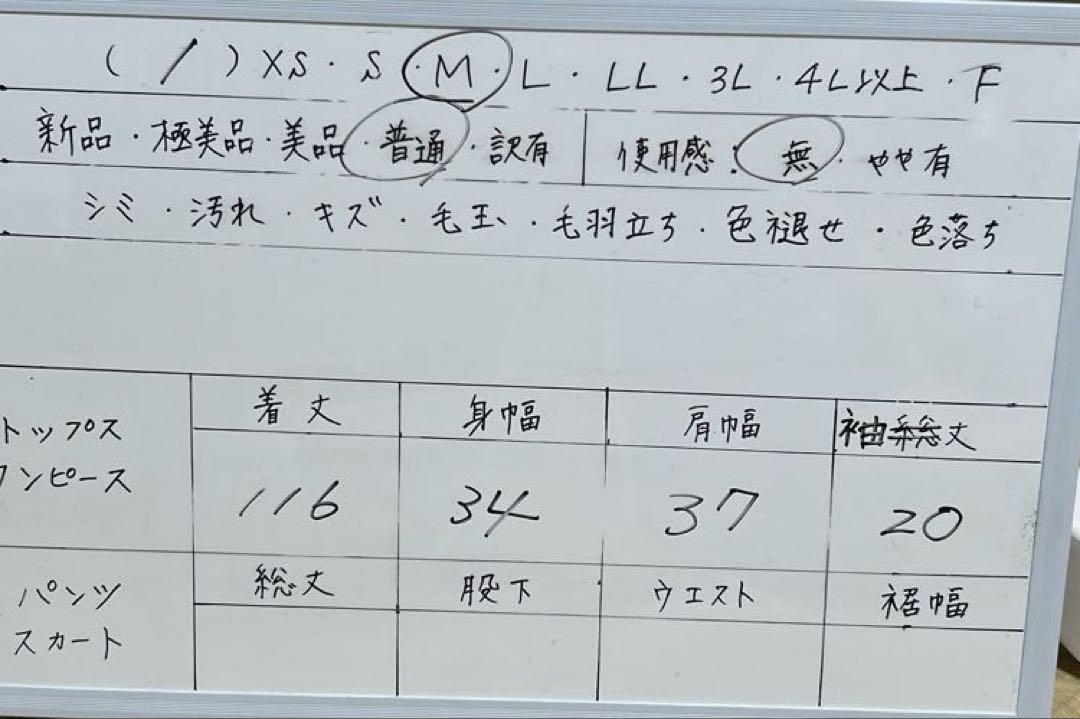 ( / ) XS・S・M・L・LL・3L・4L以上・F
新品・極美品・美品・普通・訳有 使用感: 無・やや有
シミ・汚れ・キズ・毛玉・毛羽立ち・色褪せ・色落ち
着丈 身幅 肩幅 袖総丈
トップス
ワンピース
116 34 37 20
総丈 股下 ウエスト 裾幅
パンツ
スカート